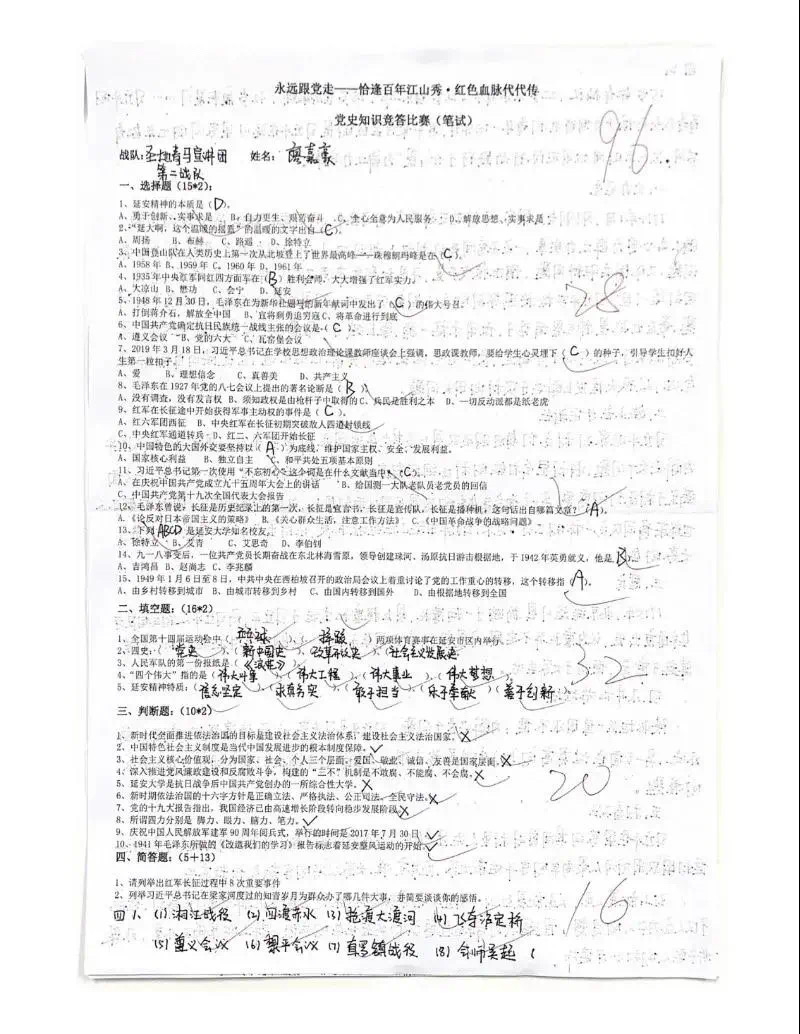 永远跟党走——恰逢百年江山秀·红色血脉代代传
党史知识竞答比赛（笔试）
96.
战队：圣地青马宣讲团 姓名：廖嘉豪
第二战队
一、选择题（15*2）：
1、延安精神的本质是（D）。
A、勇于创新、实事求是 B、自力更生、艰苦奋斗 C、全心全意为人民服务 D、解放思想、实事求是
2、“延大啊，这个温暖的摇篮”的温暖的文字出自（C）。
A、周扬 B、布赫 C、路遥 D、徐特立
3、中国登山队在人类历史上第一次从北坡登上了世界最高峰——珠穆朗玛峰是在（C）。
A、1958年 B、1959年 C、1960年 D、1961年
4、1935年中央红军同红四方面军在（B）胜利会师，大大增强了红军实力。
A、大凉山 B、懋功 C、会宁 D、延安
28
5、1948年12月30日，毛泽东在为新华社题写的新年献词中发出了（C）的伟大号召。
A、打倒蒋介石，解放全中国 B、宜将剩勇追穷寇 C、将革命进行到底
6、中国共产党确定抗日民族统一战线主张的会议是（C）。
A、遵义会议 B、党的六大 C、瓦窑堡会议
7、2019年3月18日，习近平总书记在学校思想政治理论课教师座谈会上强调，思政课教师，要给学生心灵埋下（C）的种子，引导学生扣好人
生第一粒扣子。
A、爱 B、理想信念 C、真善美 D、共产主义
8、毛泽东在1927年党的八七会议上提出的著名论断是（B）。
A、没有调查，没有发言权 B、须知政权是由枪杆子中取得的 C、兵民是胜利之本 D、一切反动派都是纸老虎
9、红军在长征途中开始获得军事主动权的事件是（C）。
A、红六军团西征 B、中央红军在长征初期突破敌人四道封锁线
C、中央红军通道转兵 D、红二、六军团开始长征
10、中国特色的大国外交要坚持以（A）为底线，维护国家主权、安全、发展利益。
A、国家核心利益 B、独立自主 C、和平共处五项基本原则
11、习近平总书记第一次使用“不忘初心”这个词是在什么文献当中（C）。
A、在庆祝中国共产党成立九十五周年大会上的讲话 B、给国测一大队老队员老党员的回信
C、中国共产党第十九次全国代表大会报告
12、毛泽东曾说，长征是历史纪录上的第一次，长征是宣言书，长征是宣传队，长征是播种机，这句话出自哪篇文章？（A）。
A.《论反对日本帝国主义的策略》 B.《关心群众生活，注意工作方法》 C.《中国革命战争的战略问题》
13、下列ABCD是延安大学知名校友。
A、徐特立 B、艾青 C、艾思奇 D、李伯钊
14、九一八事变后，一位共产党员长期奋战在东北林海雪原，领导创建珠河、汤原抗日游击根据地，于1942年英勇就义，他是（B）。
A、吉鸿昌 B、赵尚志 C、李兆麟
15、1949年1月6日至8日，中共中央在西柏坡召开的政治局会议上着重讨论了党的工作重心的转移，这个转移指（A）。
A、由乡村转移到城市 B、由城市转移到乡村 C、由国内转移到国外 D、由根据地转移到全国
二、填空题：（16*2）
1、全国第十四届运动会中（乒乓球）、（摔跤）两项体育赛事在延安市区内举行。
2、四史：（党史）、（新中国史）、（改革开放史）、（社会主义发展史）
3、人民军队的第一份报纸是（《浪花》）
32
4、“四个伟大”指的是（伟大斗争）、（伟大工程）、（伟大事业）、（伟大梦想）。
5、延安精神特质：（信念坚定）、（求真务实）、（敢于担当）、（乐于奉献）、（善于创新）。
三、判断题：（10*2）
1、新时代全面推进依法治国的目标是建设社会主义法治体系，建设社会主义法治国家。×
2、中国特色社会主义制度是当代中国发展进步的根本制度保障。✓
3、社会主义核心价值观，分为国家、社会、个人三个层面，爱国、敬业、诚信、友善是国家层面。×
4、深入推进党风廉政建设和反腐败斗争，构建的“三不”机制是不敢腐、不能腐、不会腐。×
5、延安大学是抗日战争后中国共产党创办的一所综合性大学。×
20
6、新时期依法治国的十六字方针是正确立法、严格执法、公正司法、全民守法。×
7、党的十九大报告指出，我国经济已由高速增长阶段转向稳步发展阶段。×
8、所谓四力分别是 脚力、眼力、脑力、笔力。✓
9、庆祝中国人民解放军建军90周年阅兵式，举行的时间是2017年7月30日 ✓
10、1941年毛泽东所做的《改造我们的学习》报告标志着延安整风运动的开始。✓
四、简答题：（5+13）
1、请列举出红军长征过程中8次重要事件
2、列举习近平总书记在梁家河度过的知青岁月为群众办了哪几件大事，并简要谈谈你的感悟。
16
四 1、（1）湘江战役 （2）四渡赤水 （3）抢渡大渡河 （4）飞夺泸定桥
（5）遵义会议 （6）黎平会议 （7）直罗镇战役 （8）会师吴起